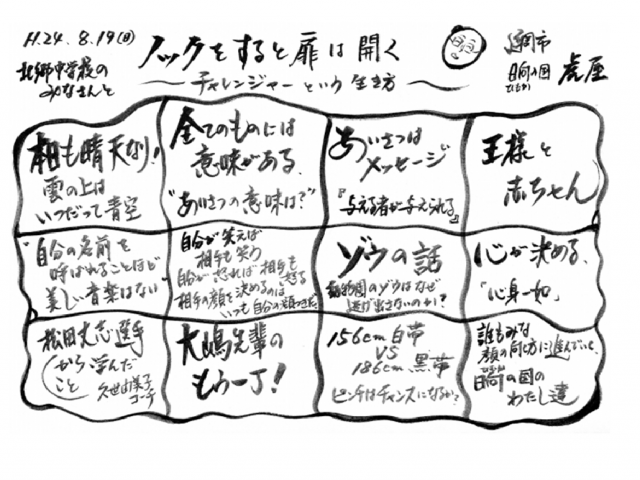 H.24.8.19(日)
北郷中学校の
みなさんと
ノックをすると扉は開く
〜チャレンジャーという生き方〜
日向の国
ひむか
虎屋
本日も晴天なり!
雲の上は
いつだって青空
全てのものには
意味がある、
"あいさつの意味は?"
あいさつは
メッセージ
『与える者が与えられる』
王様と
赤ちゃん
"自分の名前を
呼ばれることほど
美しい音楽はない"
自分が笑えば
相手も笑う
自分が怒れば相手も怒る
相手の顔を決めるのは
いつも自分の顔つきだ。
ゾウの話
動物園のゾウはなぜ
逃げ出さないのか?
心が決める、
「心身一如」
松田丈志選手
から学んだ
こと
久世由美子
コーチ
大嶋先輩の
もう一丁!
156cm白帯
VS
186cm黒帯
ピンチはチャンスになるか?
誰もみな
顔の向く方に進んでいく、
日向の国の
わたし達